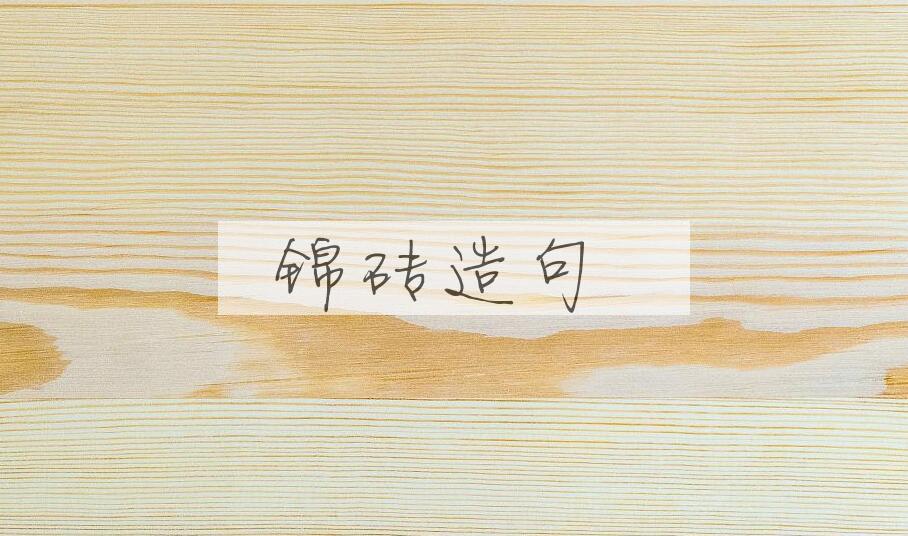 锦砖造句